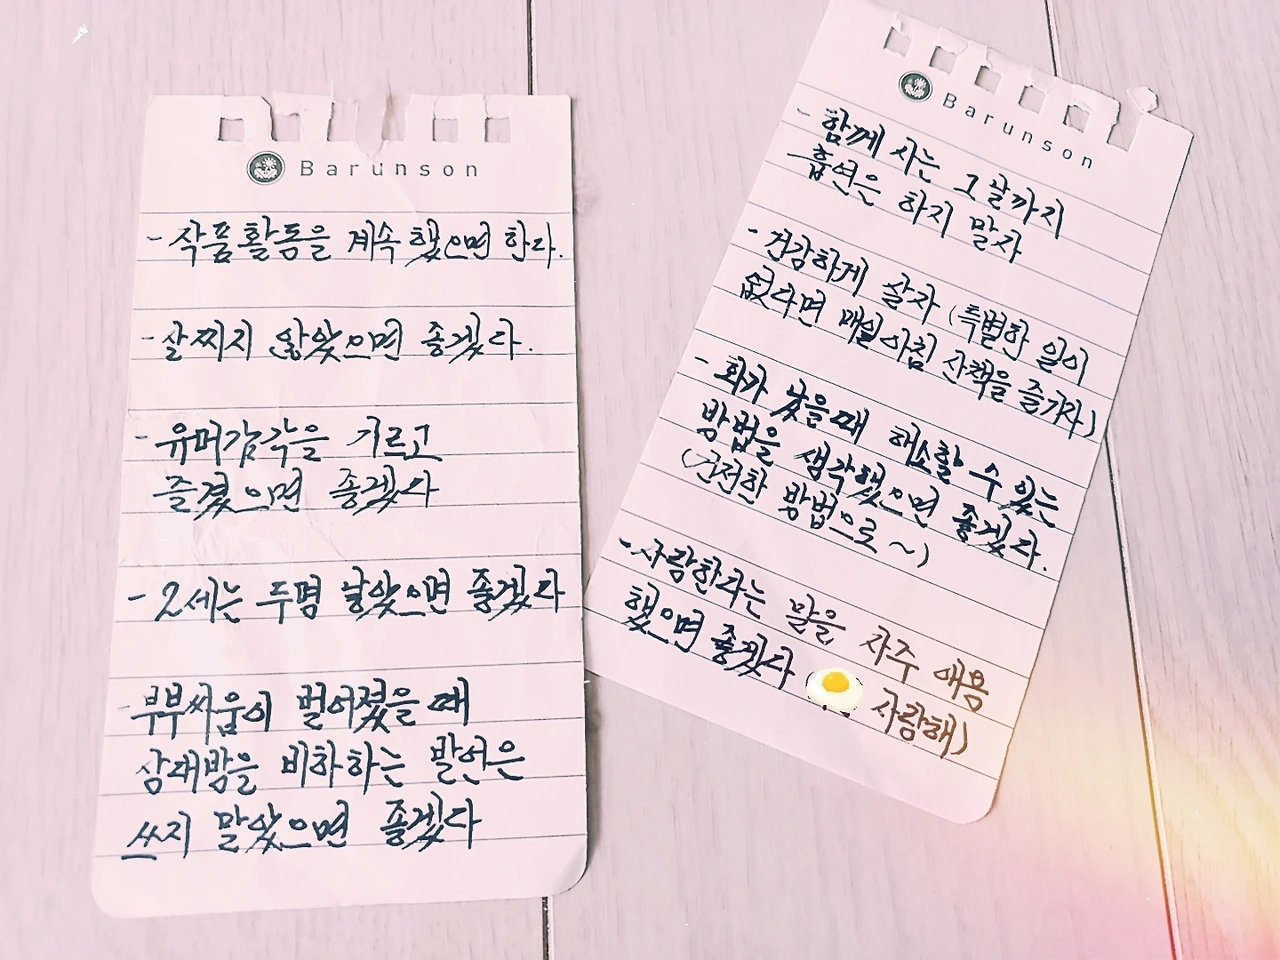 Barunson
- 작품활동을 계속 했으면 한다.
- 살찌지 않았으면 좋겠다.
- 유머감각을 기르고
즐겼으면 좋겠다
- 2세는 두명 낳았으면 좋겠다
- 부부싸움이 벌어졌을 때
상대방을 비하하는 발언은
쓰지 말았으면 좋겠다
Barunson
- 함께 사는 그날까지
흡연은 하지 말자
- 건강하게 살자 (특별한 일이
없다면 매일아침 산책을 즐기자)
- 화가 났을때 해소할 수 있는
방법을 생각했으면 좋겠다.
(건전한 방법으로~)
- 사랑한다는 말을 자주 애용
했으면 좋겠다 사랑해)